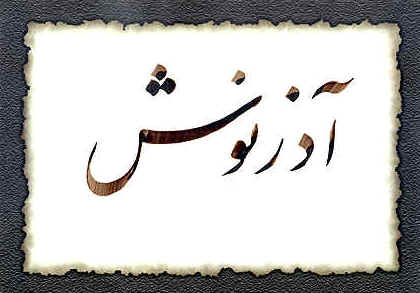 آذرنوش